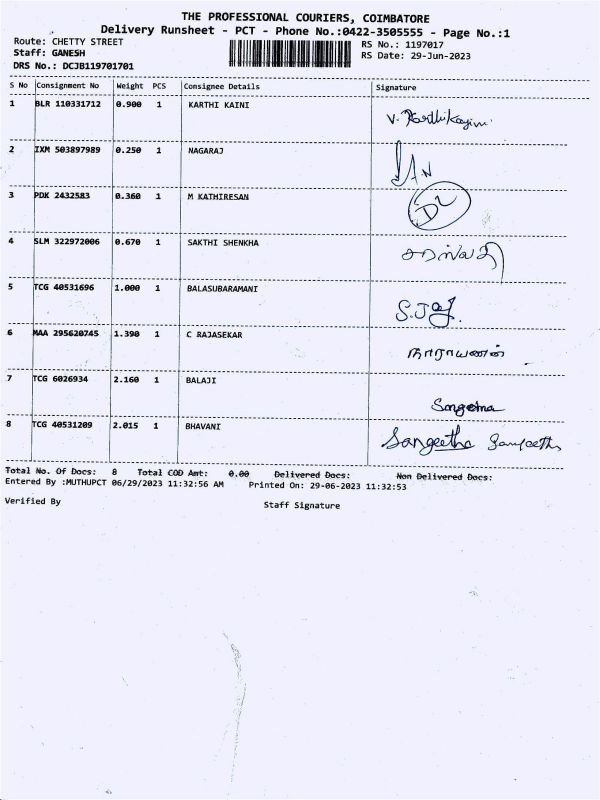 THE PROFESSIONAL COURIERS, COIMBATORE
Delivery Runsheet - PCT - Phone No.:0422-3505555 - Page No.:1
Route: CHETTY STREET RS No.: 1197017
Staff: GANESH RS Date: 29-Jun-2023
DRS No.: DCJB119701701
S No Consignment No Weight PCS Consignee Details Signature
1 BLR 110331712 0.900 1 KARTHI KAINI V. Karthikayini
2 IXM 503897989 0.250 1 NAGARAJ
3 PDK 2432583 0.360 1 M KATHIRESAN
4 SLM 322972006 0.670 1 SAKTHI SHENKHA
5 TCG 40531696 1.000 1 BALASUBARAMANI
6 MAA 295620745 1.390 1 C RAJASEKAR நாராயணன்
7 TCG 6026934 2.160 1 BALAJI
8 TCG 40531209 2.015 1 BHAVANI Sangeetha Sangeetha
Total No. Of Docs: 8 Total COD Amt: 0.00 Delivered Docs: Non Delivered Docs:
Entered By :MUTHUPCT 06/29/2023 11:32:56 AM Printed On: 29-06-2023 11:32:53
Verified By Staff Signature